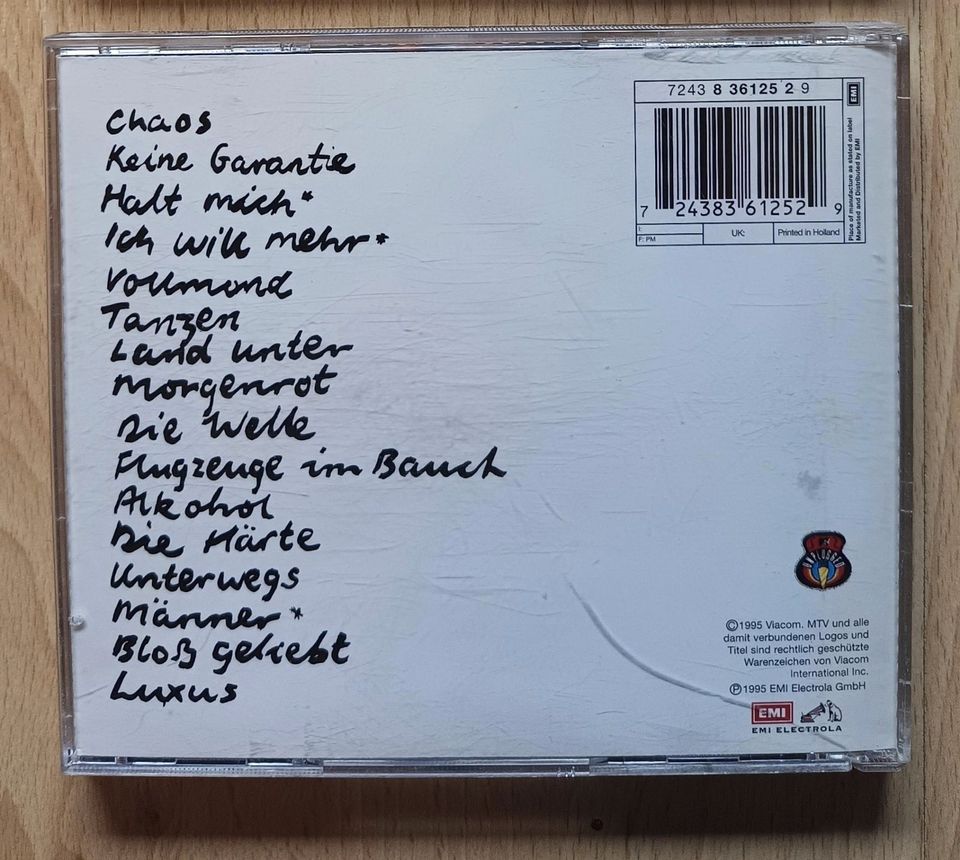 Chaos
Keine Garantie
Halt mich*
Ich will mehr*
Vollmond
Tanzen
Land unter
Morgenrot
Die Welle
Flugzeuge im Bauch
Alkohol
Die Härte
Unterwegs
Männer*
Bloß geliebt
Luxus
7243 8 36125 2 9
7 24383 61252 9
I:
F: PM
UK:
Printed in Holland
EMI
Place of manufacture as stated on label
Marketed and Distributed by EMI
UNPLUGGED
©1995 Viacom. MTV und alle
damit verbundenen Logos und
Titel sind rechtlich geschützte
Warenzeichen von Viacom
International Inc.
℗1995 EMI Electrola GmbH
EMI
EMI ELECTROLA